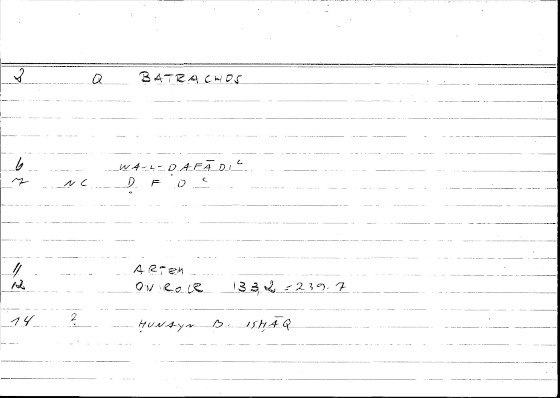 2 Q BATRACHOS
6 WA-L-ḌAFĀDIʿ
7 NC Ḍ F D ʿ
11 ARTEM
12 ON ROCR 133,2 = 239.7
14 ? ḤUNAYN B. ISḤĀQ